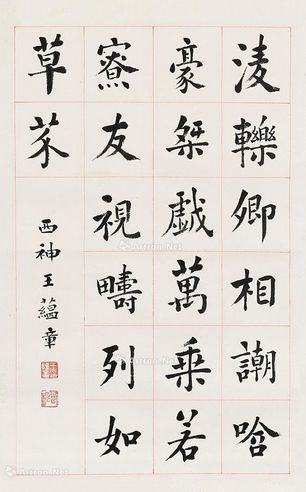 淩轢卿相謿哈
豪桀戲萬乘若
寮友視疇列如
草芥
西神王蘊章